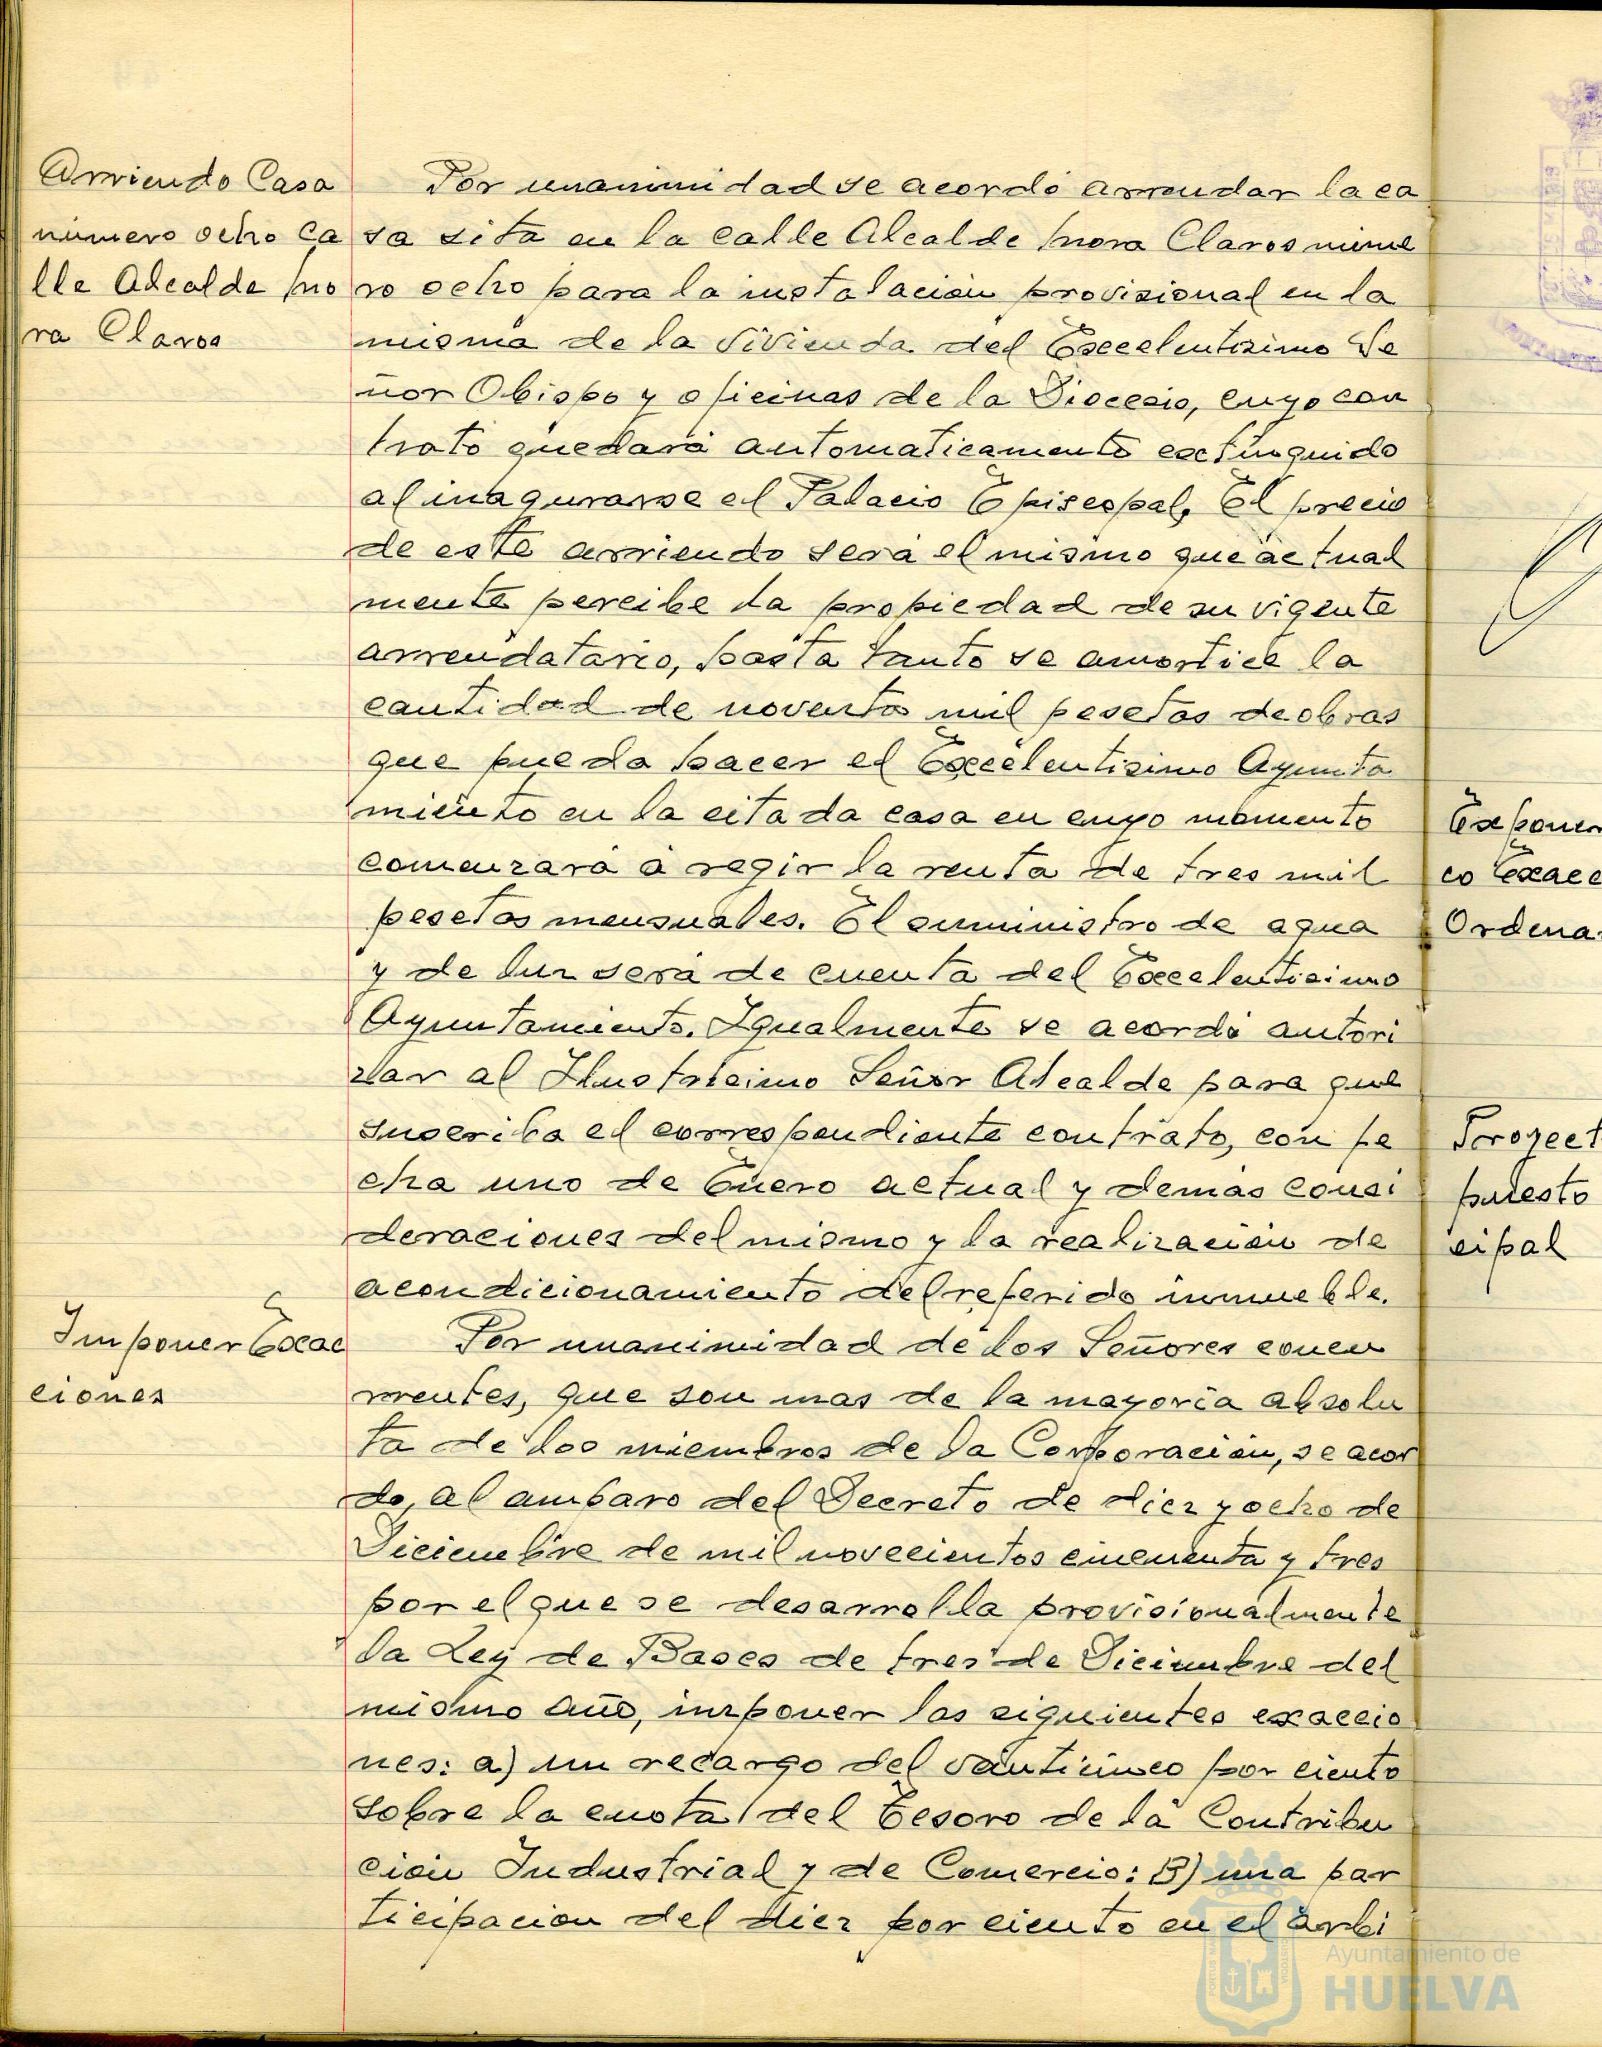 Arriendo Casa
número ocho ca
lle Alcalde Mo
ra Claros
Por unanimidad se acordó arrendar la ca
sa sita en la calle Alcalde Mora Claros núme
ro ocho para la instalación provisional en la
misma de la vivienda del Excelentisimo Se
ñor Obispo y oficinas de la Diocesis, cuyo con
trato quedará automaticamente extinguido
al inagurarse el Palacio Episcopal. El precio
de este arriendo será el mismo que actual
mente percibe la propiedad de su vigente
arrendatario, hasta tanto se amortice la
cantidad de noventa mil pesetas de obras
que pueda hacer el Excelentisimo Ayunta
miento en la citada casa en cuyo momento
comenzará a regir la renta de tres mil
pesetas mensuales. El suministro de agua
y de luz será de cuenta del Excelentisimo
Ayuntamiento. Igualmente se acordó autori
zar al Ilustrisimo Señor Alcalde para que
suscriba el correspondiente contrato, con fe
cha uno de Enero actual y demás consi
deraciones del mismo y la realización de
acondicionamiento del referido inmueble.
Imponer Exac
ciones
Por unanimidad de los Señores concu
rrentes, que son mas de la mayoría absolu
ta de los miembros de la Corporación, se acor
do, al amparo del Decreto de diez y ocho de
Diciembre de mil novecientos cincuenta y tres
por el que se desarrolla provisionalmente
la Ley de Bases de tres de Diciembre del
mismo año, imponer las siguientes exaccio
nes: a) un recargo del veinticinco por ciento
sobre la cuota del Tesoro de la Contribu
ción Industrial y de Comercio: B) una par
ticipacion del diez por ciento en el arbi
Exponer
co Exacc
Ordena
Proyect
puesto
cipal
Ayuntamiento de
HUELVA